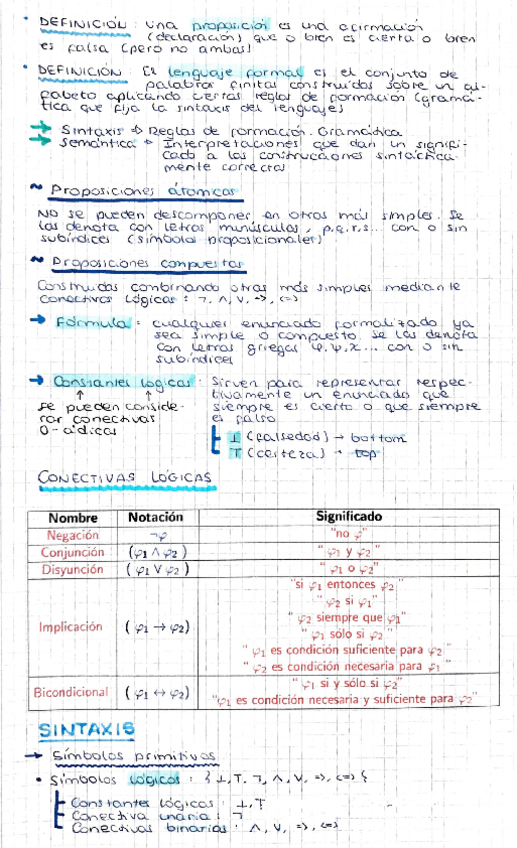 • DEFINICIÓN: una proposición es una afirmación
(declaración) que o bien es cierta o bien
es falsa (pero no ambas)
• DEFINICIÓN: El lenguaje formal es el conjunto de
palabras finitas construidas sobre un al-
fabeto aplicando ciertas reglas de formación (gramá-
tica que fija la sintaxis del lenguaje)
→ Sintaxis ⇒ Reglas de formación. Gramática
→ Semántica ⇒ Interpretaciones que dan un signifi-
cado a las construcciones sintáctica-
mente correctas
~ Proposiciones átomicas
No se pueden descomponer en otras más simples. Se
las denota con letras minúsculas, p,q,r,s... con o sin
subíndices (símbolos proposicionales)
~ Proposiciones compuestas
Construidas combinando otras más simples mediante
conectivas lógicas: ¬, ∧, ∨, =>, <=>
→ Fórmula: cualquier enunciado formalizado ya
sea simple o compuesto. Se las denota
con letras griegas φ, ψ, χ... con o sin
subíndices
→ Constantes lógicas: Sirven para representar respec-
↑ ↑ tivamente un enunciado que
se pueden conside- siempre es cierto o que siempre
rar conectivas es falso
0-ádicas ⊥ (falsedad) → bottom
T (certeza) → top
CONECTIVAS LÓGICAS
Nombre Notación Significado
Negación ¬φ "no φ"
Conjunción (φ1 ∧ φ2) "φ1 y φ2"
Disyunción (φ1 ∨ φ2) "φ1 o φ2"
"si φ1 entonces φ2"
"φ2 si φ1"
"φ2 siempre que φ1"
Implicación (φ1 → φ2) "φ1 sólo si φ2"
"φ1 es condición suficiente para φ2"
"φ2 es condición necesaria para φ1"
Bicondicional (φ1 ↔ φ2) "φ1 si y sólo si φ2"
"φ1 es condición necesaria y suficiente para φ2"
SINTAXIS
→ Símbolos primitivos
• Símbolos lógicos: {⊥, T, ¬, ∧, ∨, =>, <=>}
Constantes lógicas: ⊥, T
Conectiva unaria: ¬
Conectivas binarias: ∧, ∨, =>, <=>